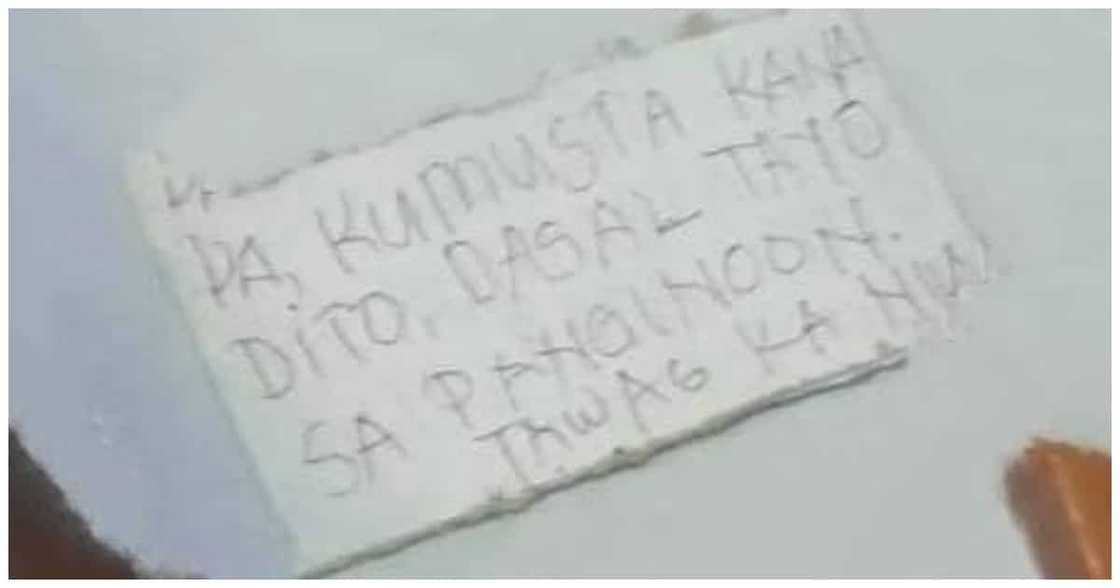 DA, KUMUSTA KANA
DITO, DASAL TAYO
SA PANGINOON.
TAWAG KA